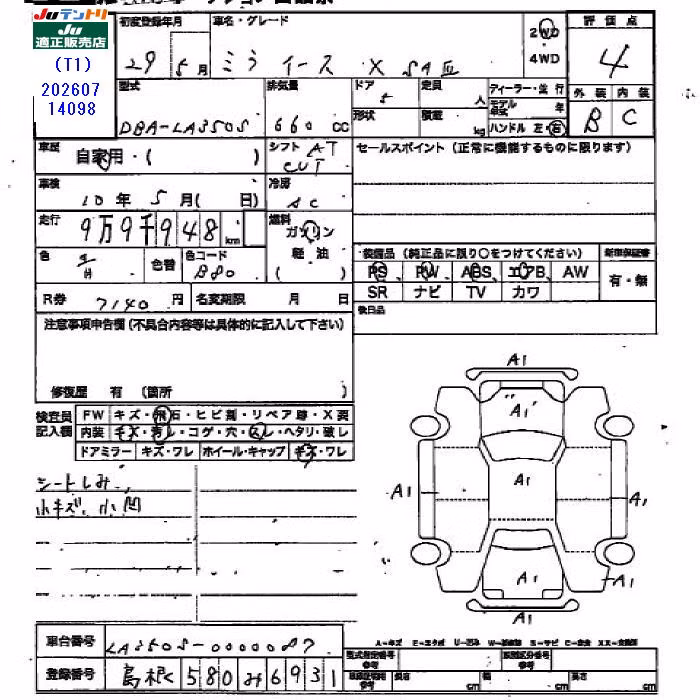 Juテントリ
適正販売店
(T1)
202607
14098
初度登録年月
29 5月
車名・グレード
ミライース X SAⅢ
2WD
・
4WD
評価点
4
外装 内装
B C
型式
DBA-LA350S
排気量
660 cc
ドア
5
形状
定員
人
積載
kg
ディーラー・並行
モデル
年式
年
ハンドル 左・右
車歴
自家用・( )
シフト AT
CVT
セールスポイント (正常に機能するものに限ります)
車検
10年 5月( 日)
冷房
AC
走行
9万9千948km
燃料
ガソリン
軽油
( )
色
色替
色コード
B80
装備品 (純正品に限り○をつけてください)
新車保証書
PS PW ABS エアB AW
SR ナビ TV カワ
有・無
R券 7140円
名変期限 月 日
後日品
注意事項申告欄 (不具合内容等は具体的に記入して下さい)
修復歴 有 (箇所 )
検査員
記入欄
FW キズ・飛石・ヒビ割・リペア跡・X要
内装 キズ・汚レ・コゲ・穴・スレ・ヘタリ・破レ
ドアミラー キズ・ワレ ホイール・キャップ キズ・ワレ
シートしみ、
小キズ、小凹
A1
A1
A1
A1
A1
A1
A1
A1
車台番号 LA350S-0000087
登録番号 島根 580 み 6931
A-キズ
型式指定番号
参考
類別区分番号
参考
長さ cm
幅 cm
高さ cm